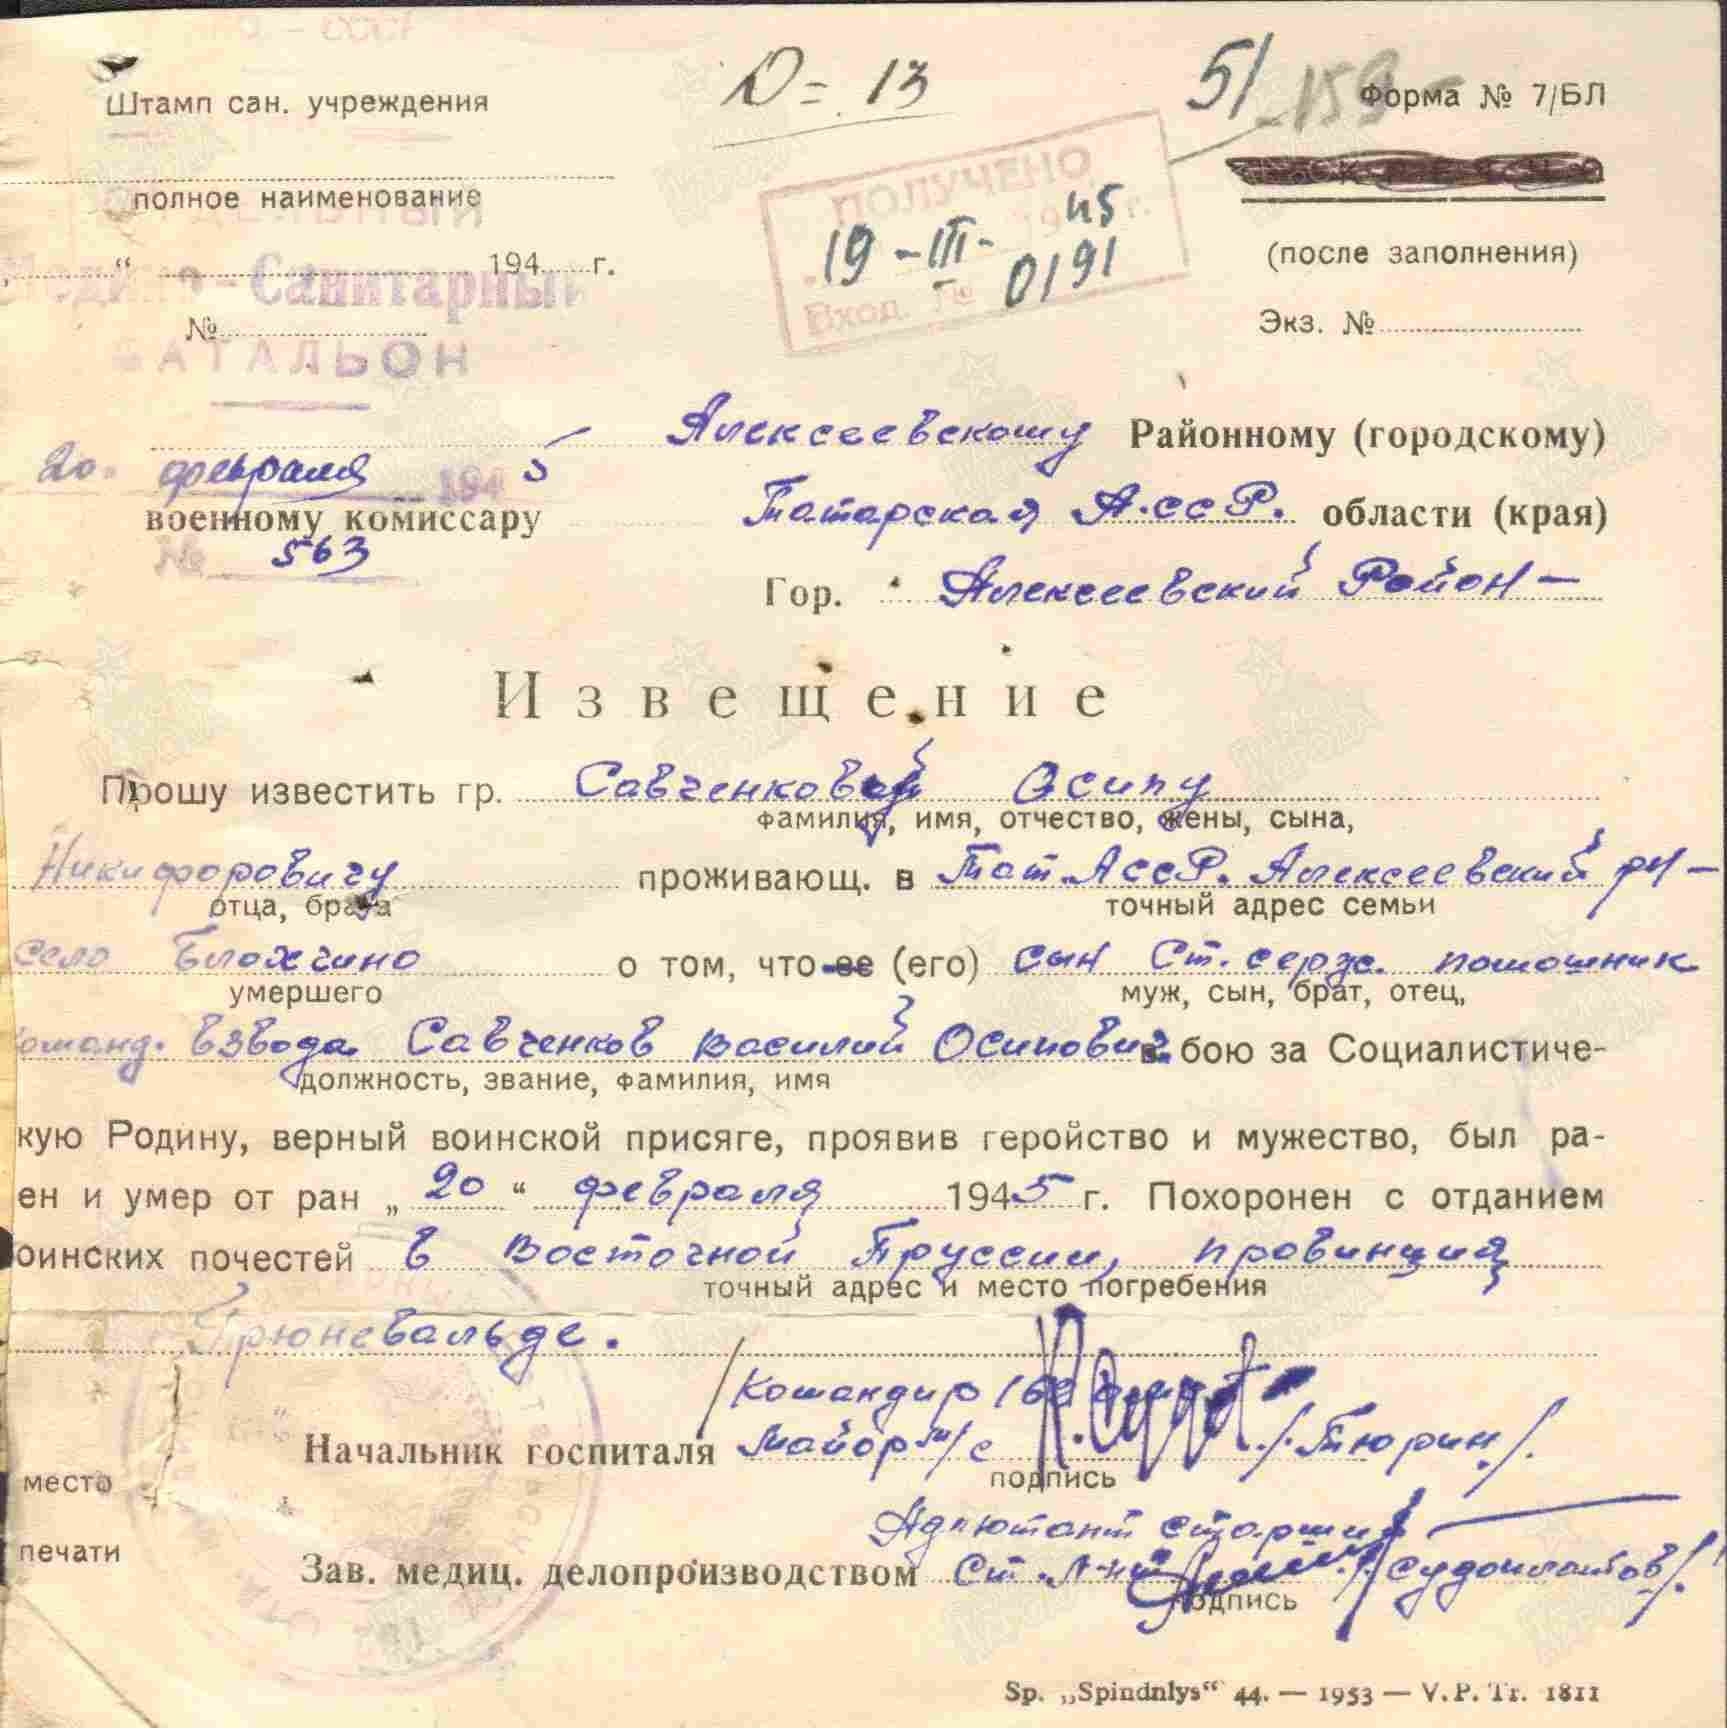 Д = 13
51 - 159
Штамп сан. учреждения
Форма № 7/БЛ
полное наименование
ПОЛУЧЕНО
19 - III - 1945 г.
Вход. № 0191
(после заполнения)
„ “ 194 г.
Медико-Санитарный
№
БАТАЛЬОН
Экз. №
Алексеевскому Районному (городскому)
20 февраля 1945
военному комиссару
Татарская А.ССР. области (края)
№ 563
Гор. Алексеевский Район -
Извещение
Прошу известить гр. Савченкову Осипу
фамилия, имя, отчество, жены, сына,
Никифоровичу проживающ. в Тат. АССР. Алексеевский рн -
отца, брата точный адрес семьи
село о том, что ее (его) сын Ст. серж. помошник
умершего муж, сын, брат, отец,
команд. взвода Савченков Василий Осипович в бою за Социалистиче-
должность, звание, фамилия, имя
кую Родину, верный воинской присяге, проявив геройство и мужество, был ра-
ен и умер от ран „ 20 “ февраля 1945 г. Похоронен с отданием
оинских почестей в Восточной Пруссии, провинция
точный адрес и место погребения
Грюневальде.
Командир
Начальник госпиталя Майор м/с /Тюрин/.
подпись
место
печати
Адъютант старший
Зав. медиц. делопроизводством Ст. Л-нт /Судоплатов/.
подпись
Sp. „Spindulys“ 44. — 1953 — V. P. Tr. 1811